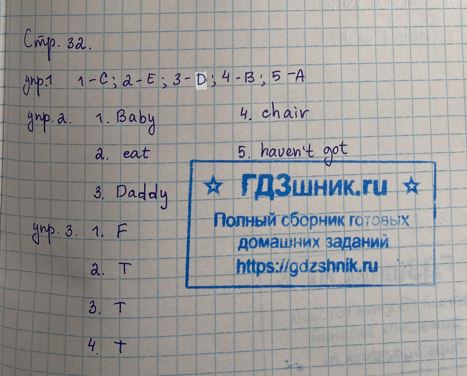 Стр. 32.
упр.1 1-C; 2-E; 3-D; 4-B; 5-A
упр. 2. 1. Baby 4. chair
2. eat 5. haven't got
3. Daddy
☆ ГДЗшник.ru ☆
Полный сборник готовых
домашних заданий
https://gdzshnik.ru
упр. 3. 1. F
2. T
3. T
4. T